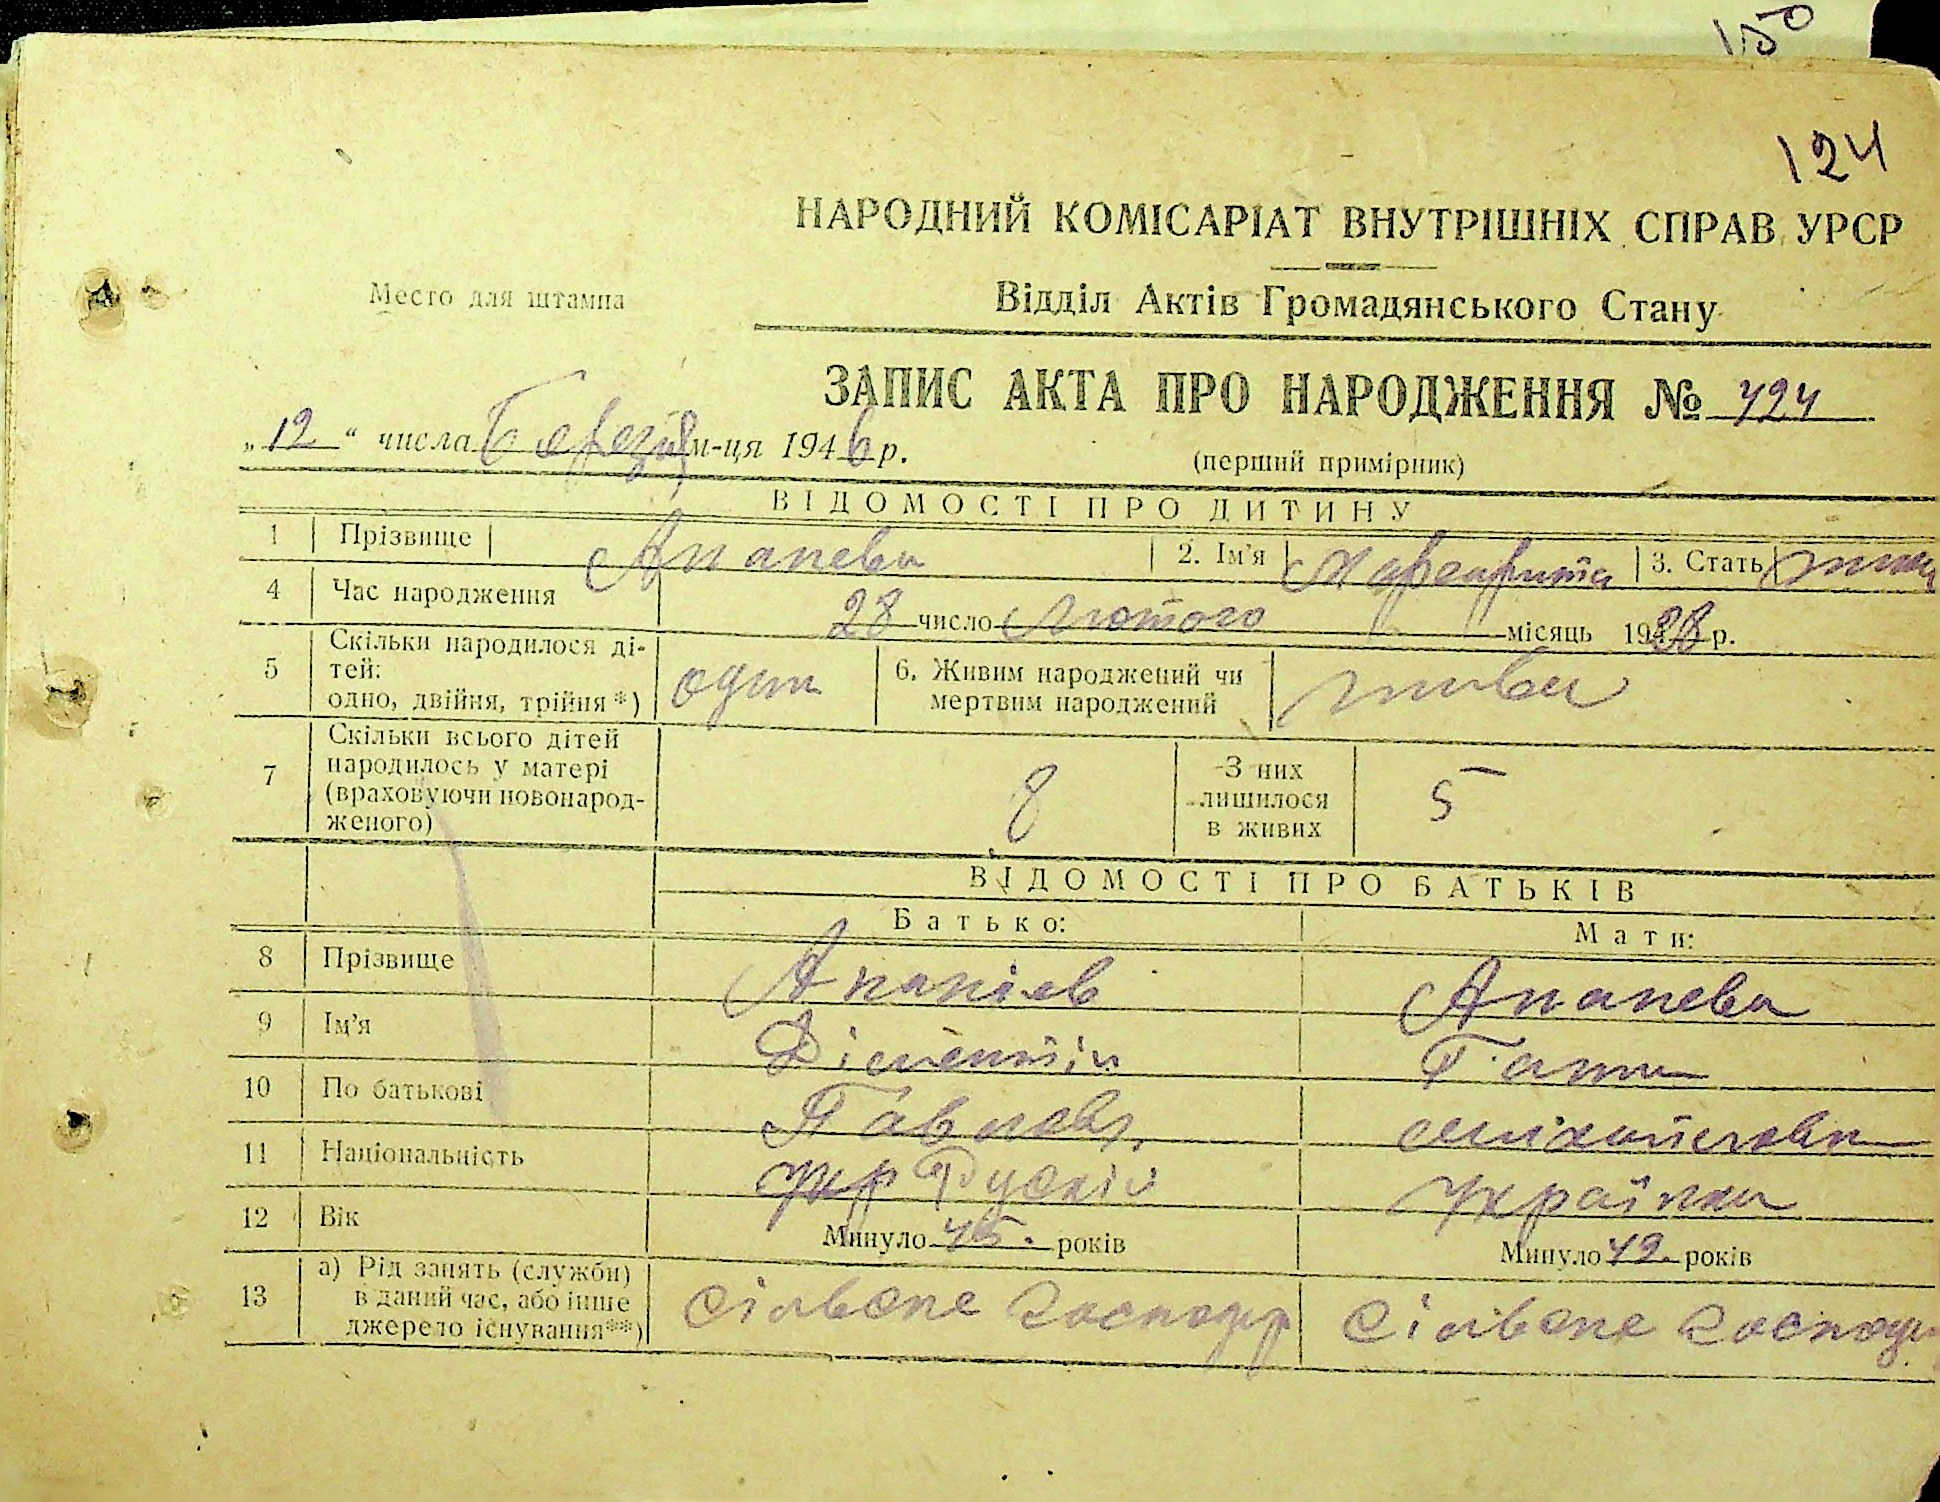 150
124
НАРОДНИЙ КОМІСАРІАТ ВНУТРІШНІХ СПРАВ УРСР
Место для штампа
Відділ Актів Громадянського Стану
ЗАПИС АКТА ПРО НАРОДЖЕННЯ № 124
„12“ числа Березня м-ця 1946 р.
(перший примірник)
ВІДОМОСТІ ПРО ДИТИНУ
1 Прізвище Ананева 2. Ім'я Маргарита 3. Стать
4 Час народження 28 число Лютого місяць 1928 р.
5 Скільки народилося ді-
тей:
одно, двійня, трійня*) один 6. Живим народжений чи
мертвим народжений жива
7 Скільки всього дітей
народилось у матері
(враховуючи новонарод-
женого) 8 З них
лишилося
в живих 5
ВІДОМОСТІ ПРО БАТЬКІВ
Батько: Мати:
8 Прізвище Ананіев Ананева
9 Ім'я Ганна
10 По батькові Павлов. Михайловна
11 Національність укр Руский Українка
12 Вік Минуло 45. років Минуло 42. років
13 а) Рід занять (служби)
в даний час, або інше
джерело існування**) Сільске господар Сільске господар